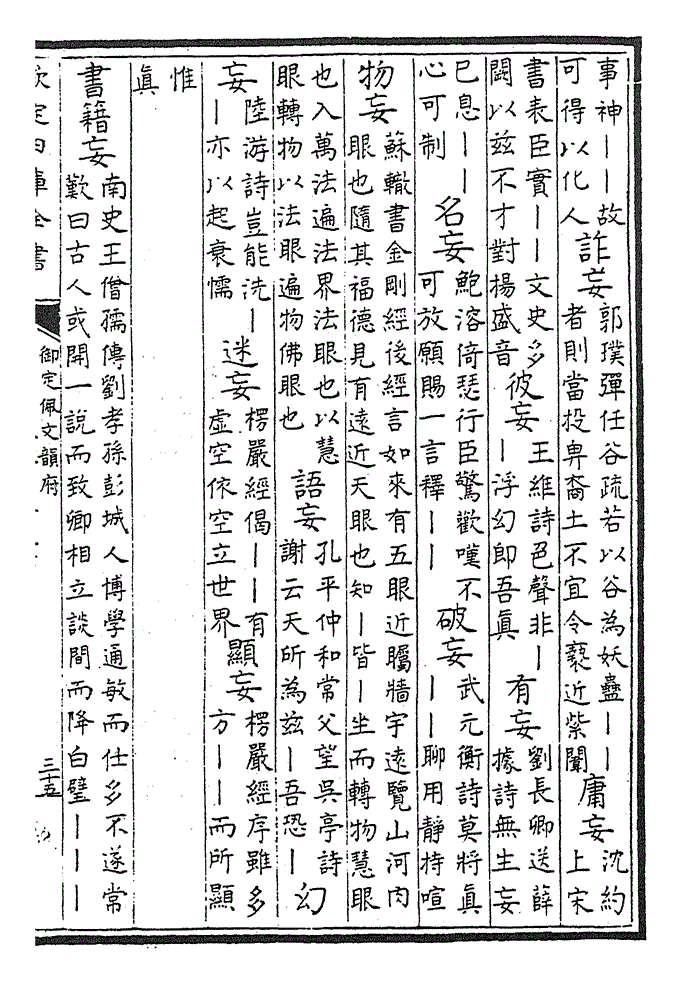 事神｜｜故
可得以化人
詐妄
郭璞彈任谷疏若以谷為妖蠱｜｜
者則當投畀裔土不宜令褻近紫闥
庸妄
沈約
上宋
書表臣實｜｜文史多
闕以兹不才對揚盛音
彼妄
王維詩色聲非｜
｜浮幻即吾眞
有妄
劉長卿送薛
據詩無生妄
已息｜｜
心可制
名妄
鮑溶倚瑟行臣驚歡嘆不
可放願賜一言釋｜｜
破妄
武元衡詩莫將眞
｜｜聊用靜持喧
物妄
蘇轍書金剛經後經言如來有五眼近矚牆宇遠覽山河肉
眼也隨其福德見有遠近天眼也知｜皆｜坐而轉物慧眼
也入萬法遍法界法眼也以慧
眼轉物以法眼遍物佛眼也
語妄
孔平仲和常父望吳亭詩
謝云天所為兹｜吾恐｜
幻
妄
陸游詩豈能洗｜
｜亦以起衰懦
迷妄
楞嚴經偈｜｜有
虛空依空立世界
顯妄
楞嚴經序雖多
方｜｜而所顯
惟
眞
書籍妄
南史王僧孺傳劉孝孫彭城人博學通敏而仕多不遂常
歎曰古人或開一說而致卿相立談間而降白璧｜｜｜
欽定四庫全書
御定佩文韻府
三十五